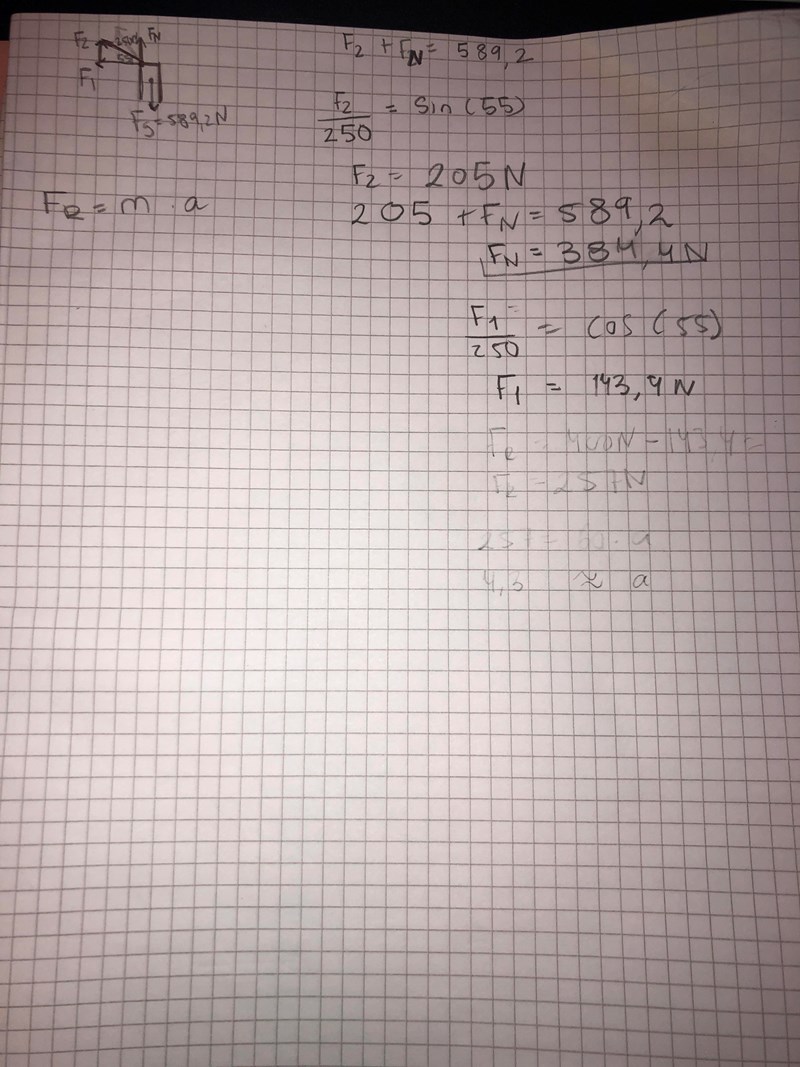 F₂ 250N F_N
55
F₁
F_S=589,2N
F_R = m · a
F₂ + F_N = 589,2
F₂/250 = sin(55)
F₂ = 205N
205 + F_N = 589,2
F_N = 384,4N
F₁/250 = cos(55)
F₁ = 143,4N
F_R = 400N - 143,4 =
F_R = 257N
257 = 60 · a
4,3 ≈ a